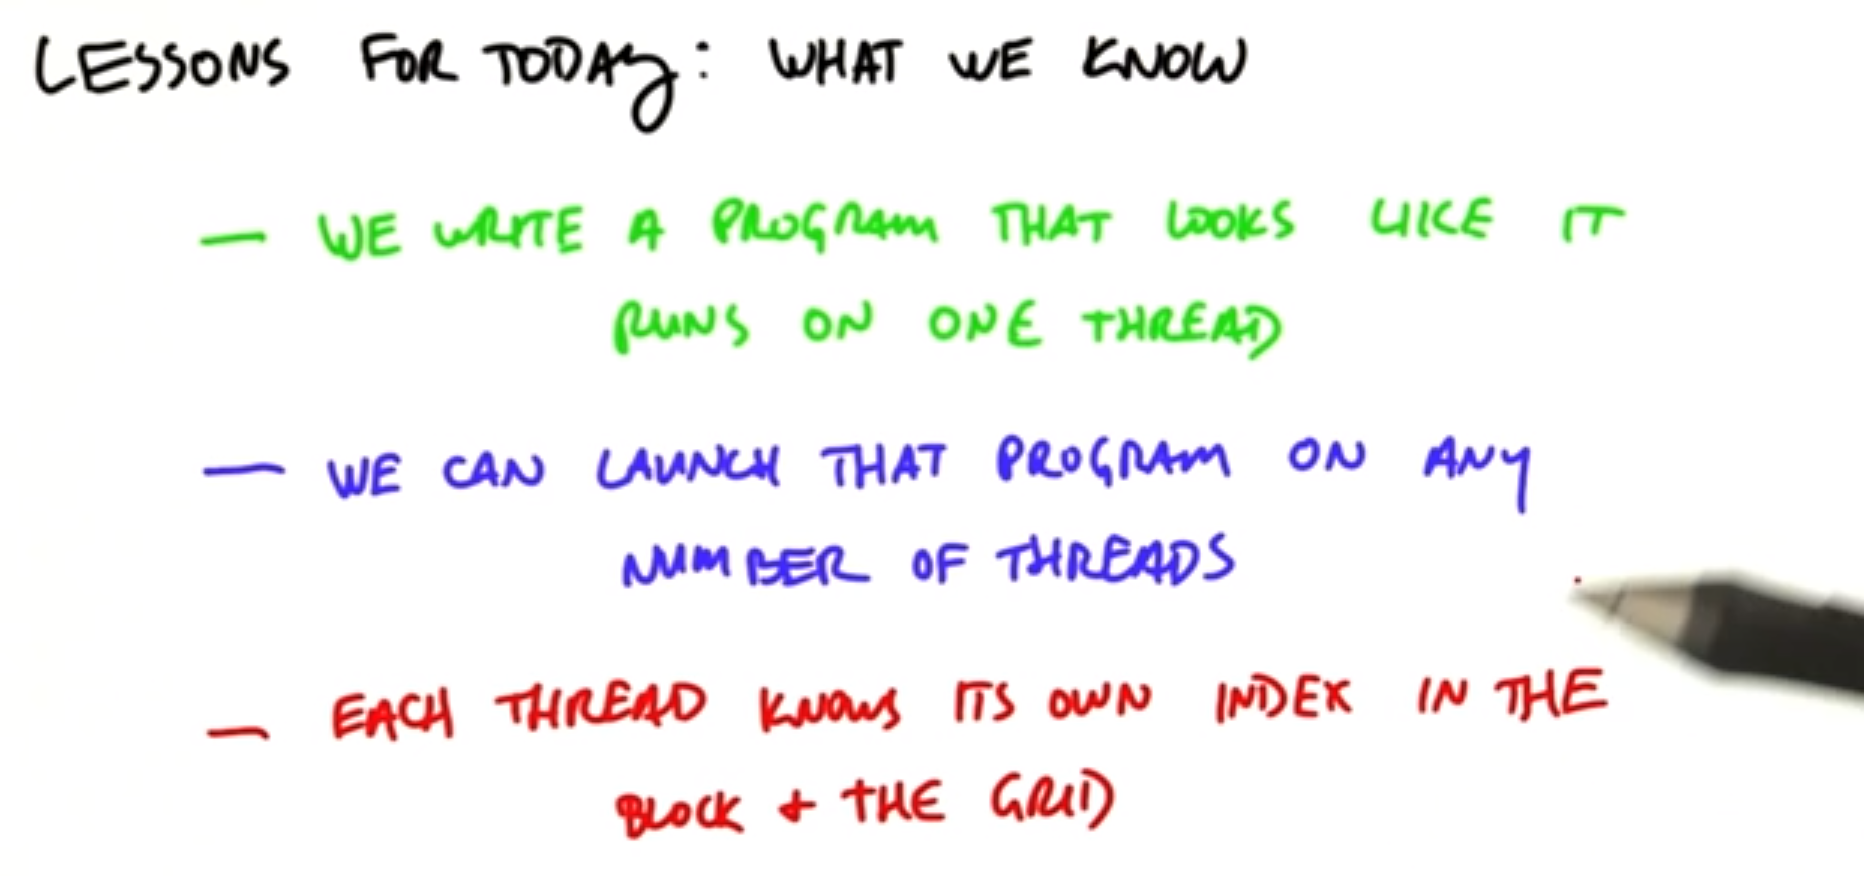 LESSONS FOR TODAY: WHAT WE KNOW
— WE WRITE A PROGRAM THAT LOOKS LIKE IT
RUNS ON ONE THREAD
— WE CAN LAUNCH THAT PROGRAM ON ANY
NUMBER OF THREADS
— EACH THREAD KNOWS ITS OWN INDEX IN THE
BLOCK + THE GRID